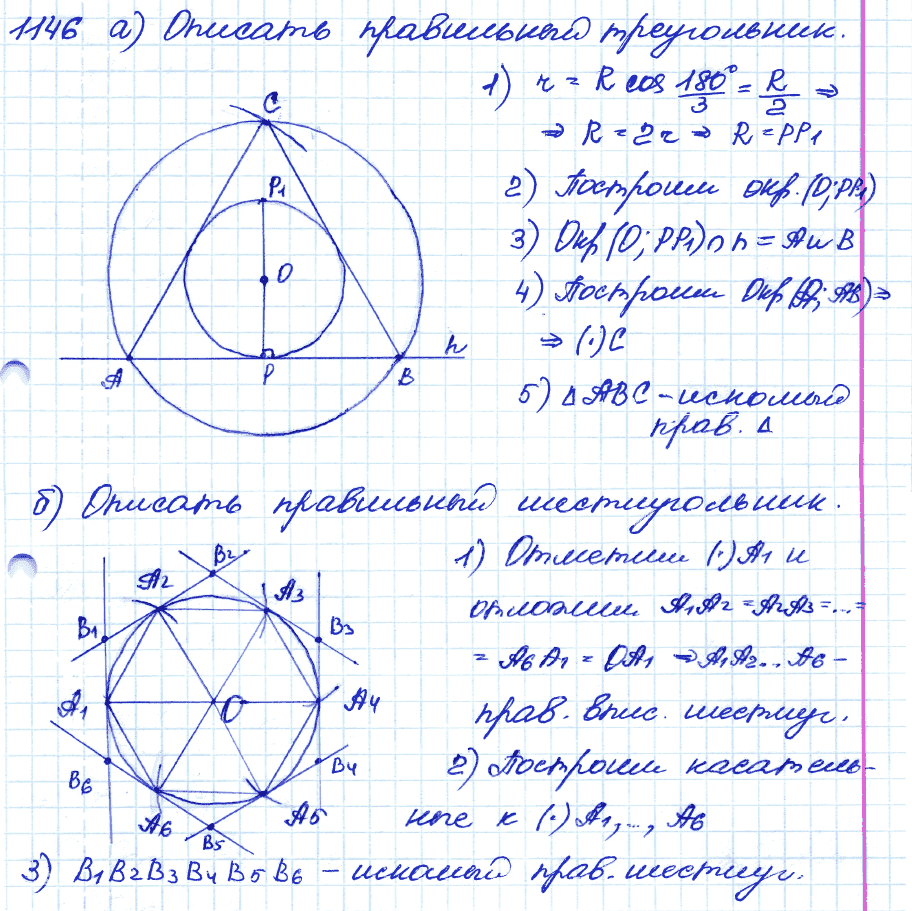 1146 а) Описать правильный треугольник.
1) r = R cos 180°/3 = R/2 ⇒
⇒ R = 2r ⇒ R = PP1
2) Построим окр.(O; PP1)
3) Окр(O; PP1) ∩ h = A и B
4) Построим Окр(A; AB) ⇒
⇒ (·) C
5) △ABC – искомый
прав. △
C
P1
O
A
P
B
h
б) Описать правильный шестиугольник.
1) Отметим (·) A1 и
отложим A1A2 = A2A3 = ... =
= A6A1 = OA1 ⇒ A1A2...A6 –
прав. впис. шестиуг.
2) Построим касатель-
ные к (·) A1, ..., A6
B2
A2
A3
B1
B3
A1
O
A4
B6
B4
A6
A5
B5
3) B1B2B3B4B5B6 – искомый прав. шестиуг.